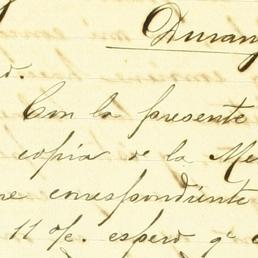 Durang
d.
Con la presente
copia de la Me
re correspondiente
11 o/e. espero q